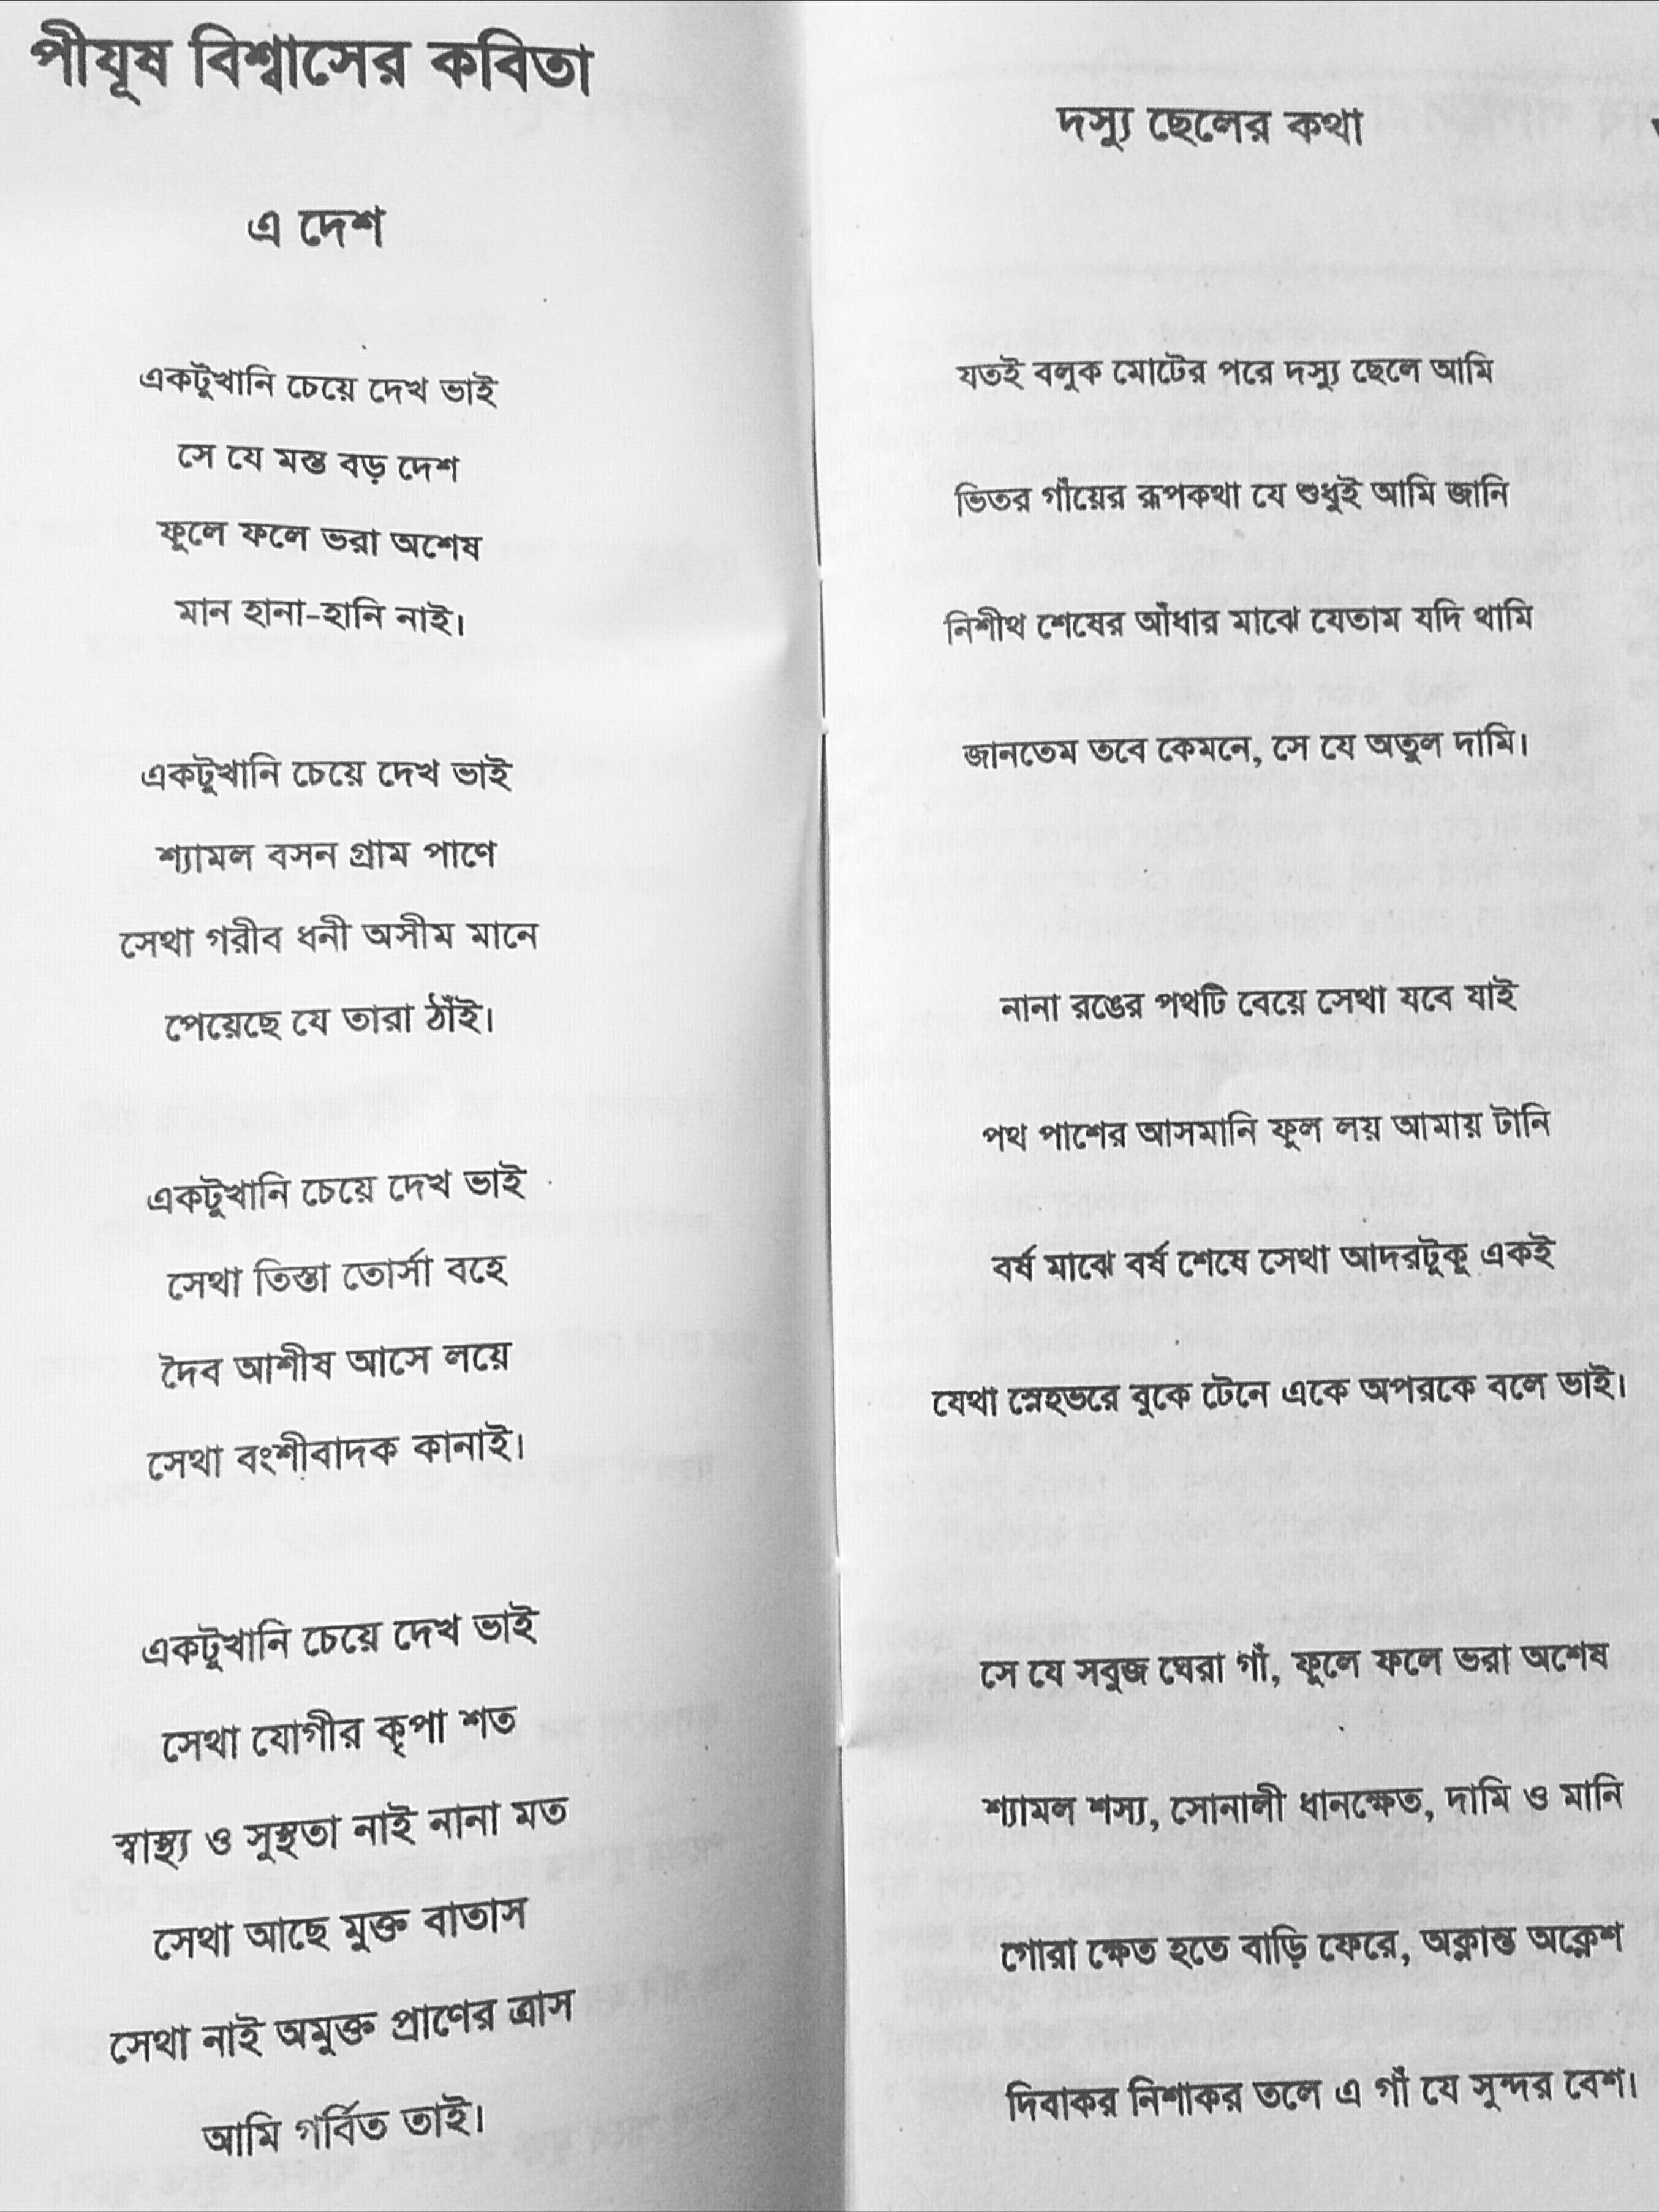 পীযূষ বিশ্বাসের কবিতা
এ দেশ
একটুখানি চেয়ে দেখ ভাই
সে যে মস্ত বড় দেশ
ফুলে ফলে ভরা অশেষ
মান হানা-হানি নাই।
একটুখানি চেয়ে দেখ ভাই
শ্যামল বসন গ্রাম পাণে
সেথা গরীব ধনী অসীম মানে
পেয়েছে যে তারা ঠাঁই।
একটুখানি চেয়ে দেখ ভাই
সেথা তিস্তা তোর্সা বহে
দৈব আশীষ আসে লয়ে
সেথা বংশীবাদক কানাই।
একটুখানি চেয়ে দেখ ভাই
সেথা যোগীর কৃপা শত
স্বাস্থ্য ও সুস্থতা নাই নানা মত
সেথা আছে মুক্ত বাতাস
সেথা নাই অমুক্ত প্রাণের ত্রাস
আমি গর্বিত তাই।
দস্যু ছেলের কথা
যতই বলুক মোটের পরে দস্যু ছেলে আমি
ভিতর গাঁয়ের রূপকথা যে শুধুই আমি জানি
নিশীথ শেষের আঁধার মাঝে যেতাম যদি থামি
জানতেম তবে কেমনে, সে যে অতুল দামি।
নানা রঙের পথটি বেয়ে সেথা যবে যাই
পথ পাশের আসমানি ফুল লয় আমায় টানি
বর্ষ মাঝে বর্ষ শেষে সেথা আদরটুকু একই
যেথা স্নেহভরে বুকে টেনে একে অপরকে বলে ভাই।
সে যে সবুজ ঘেরা গাঁ, ফুলে ফলে ভরা অশেষ
শ্যামল শস্য, সোনালী ধানক্ষেত, দামি ও মানি
গোরা ক্ষেত হতে বাড়ি ফেরে, অক্লান্ত অক্লেশ
দিবাকর নিশাকর তলে এ গাঁ যে সুন্দর বেশ।